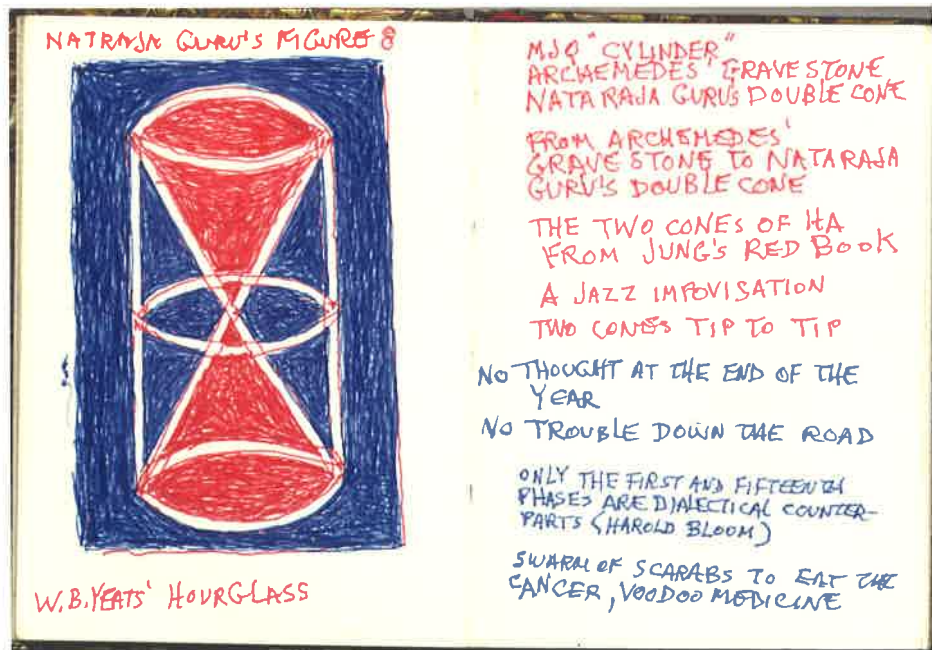 NATRAJA GURU'S FIGURE 8
W.B.YEATS' HOURGLASS
MJQ "CYLINDER"
ARCHEMEDES' GRAVESTONE
NATARAJA GURU'S DOUBLE CONE
FROM ARCHEMEDES'
GRAVESTONE TO NATARAJA
GURU'S DOUBLE CONE
THE TWO CONES OF HA
FROM JUNG'S RED BOOK
A JAZZ IMPOVISATION
TWO CONES TIP TO TIP
NO THOUGHT AT THE END OF THE
YEAR
NO TROUBLE DOWN THE ROAD
ONLY THE FIRST AND FIFTEENTH
PHASES ARE DIALECTICAL COUNTER-
PARTS (HAROLD BLOOM)
SWARM OF SCARABS TO EAT THE
CANCER, VOODOO MEDICINE